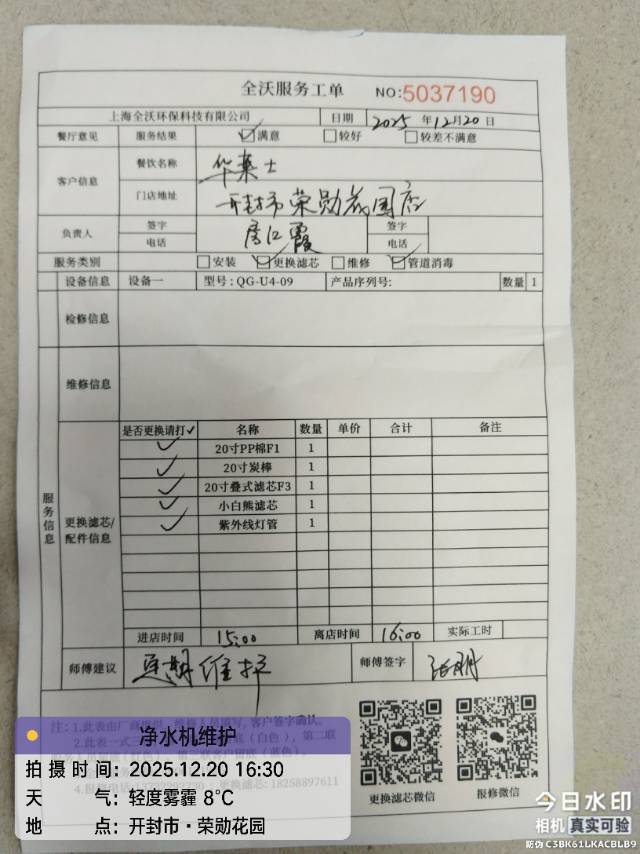 全沃服务工单 NO:5037190
上海全沃环保科技有限公司 日期 2025年12月20日
餐厅意见 服务结果 ☑满意 □较好 □较差不满意
客户信息 餐饮名称 华莱士
门店地址 开封市荣勋花园店
负责人 签字 签字
电话 电话
服务类别 □安装 ☑更换滤芯 □维修 ☑管道消毒
设备信息 设备一 型号:QG-U4-09 产品序列号: 数量 1
检修信息
维修信息
服务信息
更换滤芯/配件信息
是否更换请打✓ 名称 数量 单价 合计 备注
✓ 20寸PP棉F1 1
✓ 20寸炭棒 1
✓ 20寸叠式滤芯F3 1
✓ 小白熊滤芯 1
✓ 紫外线灯管 1
进店时间 15:00 离店时间 16:00 实际工时
师傅建议 定期维护 师傅签字 张朋
更换滤芯微信 报修微信
净水机维护
拍摄时间: 2025.12.20 16:30
天气: 轻度雾霾 8℃
地点: 开封市·荣勋花园
今日水印
相机 真实可验
防伪 C3BK61LKACBLB9